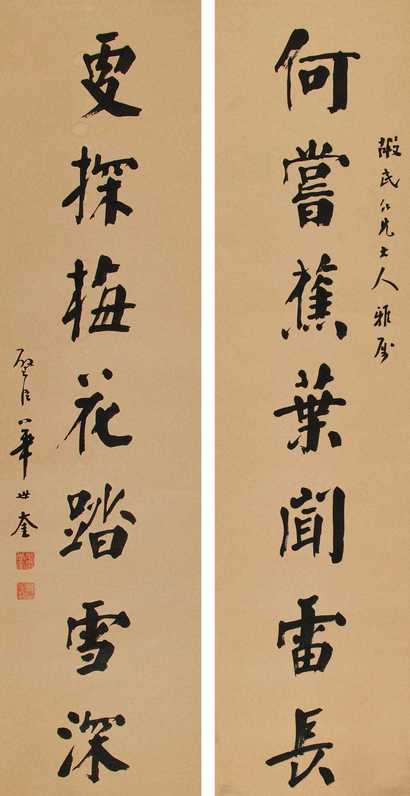 嘏民仁兄大人雅屬
何嘗蕉葉聞雷長
更探梅花踏雪深
璧臣華世奎